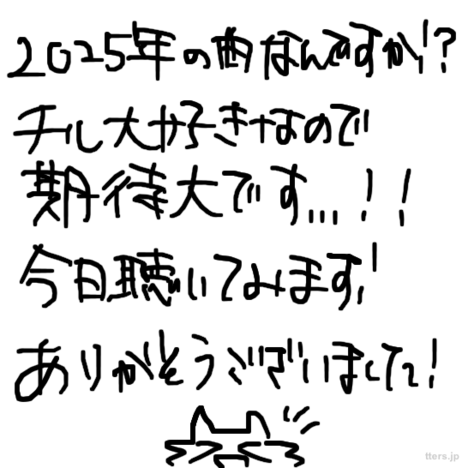 2025年の曲なんですか!?
チル大好きなので
期待大です...!!
今日聴いてみます!
ありがとうございました!
tters.jp